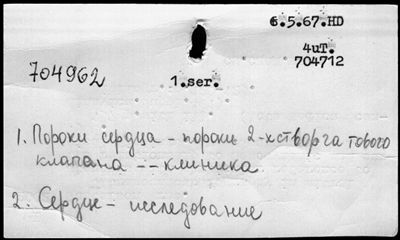 6.5.67.HD
4uT.
704962
704712
1.ser.
1. Пороки сердца - пороки 2-хстворчатового
клапана -- клиника.
2. Сердце - исследование